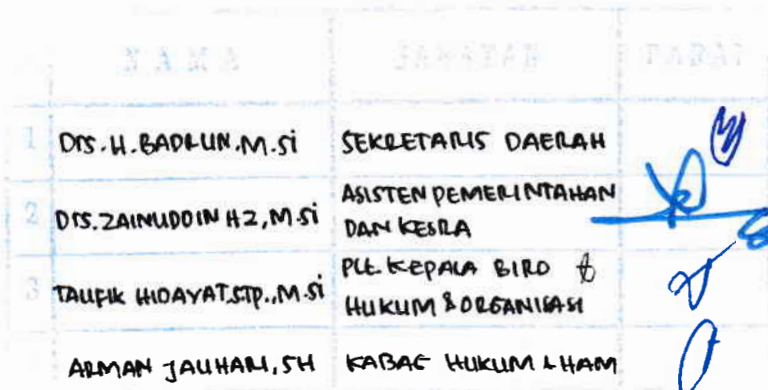 NAMA JABATAN PARAF
1 Drs. H. BADRUN, M.Si SEKRETARIS DAERAH
2 Drs. ZAINUDDIN HZ, M.Si ASISTEN PEMERINTAHAN
DAN KESRA
3 TAUFIK HIDAYAT, STP., M.Si PLT. KEPALA BIRO
HUKUM & ORGANISASI
ARMAN JAUHARI, SH KABAG HUKUM & HAM